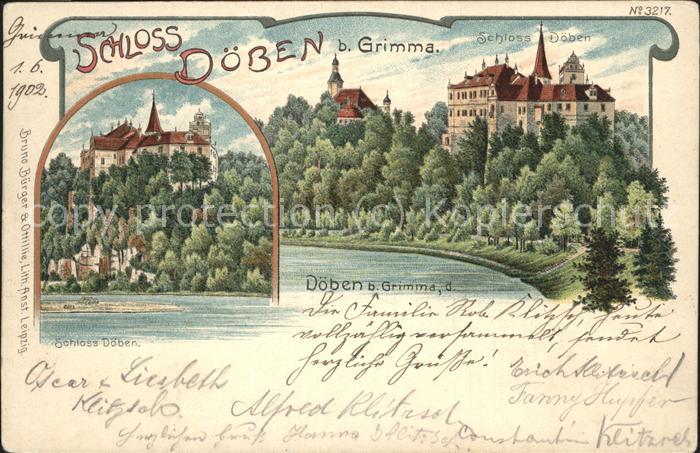 No 3217.
Grimma
1. 6.
1902.
SCHLOSS DÖBEN b. Grimma.
Schloss Döben
Bruno Bürger & Ottillie, Lith. Anst. Leipzig.
copyright protection Schloss
Döben b. Grimma, d.
Schloss Döben.
Die Familie Rob. Klitzsch, heute
vollzählig versammelt, sendet
herzliche Grüße!
Oscar & Liesbeth
Klitzsch.
Erich Klitzsch
Fanny
Alfred Klitzsch
Herzlichen Gruß Hanna Klitzsch
Constantin Klitzsch